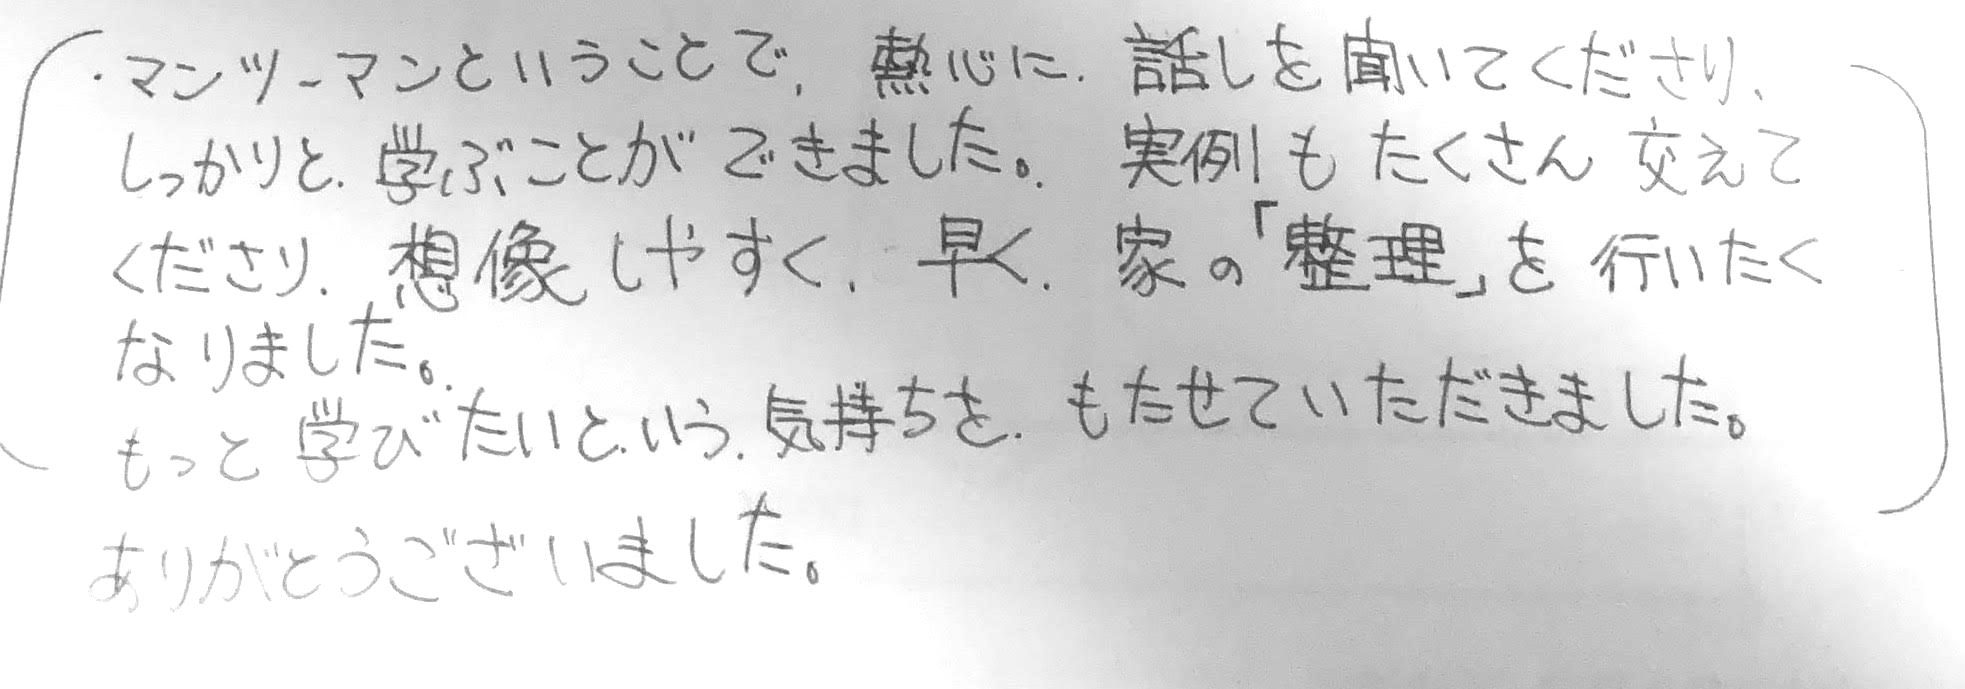 ・マンツーマンということで、熱心に、話しを聞いてくださり、
しっかりと、学ぶことができました。実例もたくさん交えて
くださり、想像しやすく、早く、家の「整理」を行いたく
なりました。
もっと学びたいという、気持ちを、もたせていただきました。
ありがとうございました。